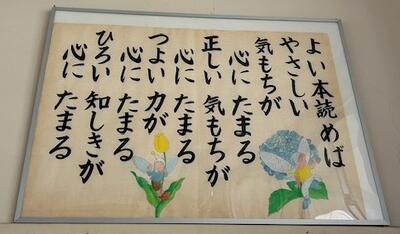 よい本読めば
やさしい
気もちが
心に たまる
正しい 気もちが
心に たまる
つよい 力が
心に たまる
ひろい 知しきが
心に たまる